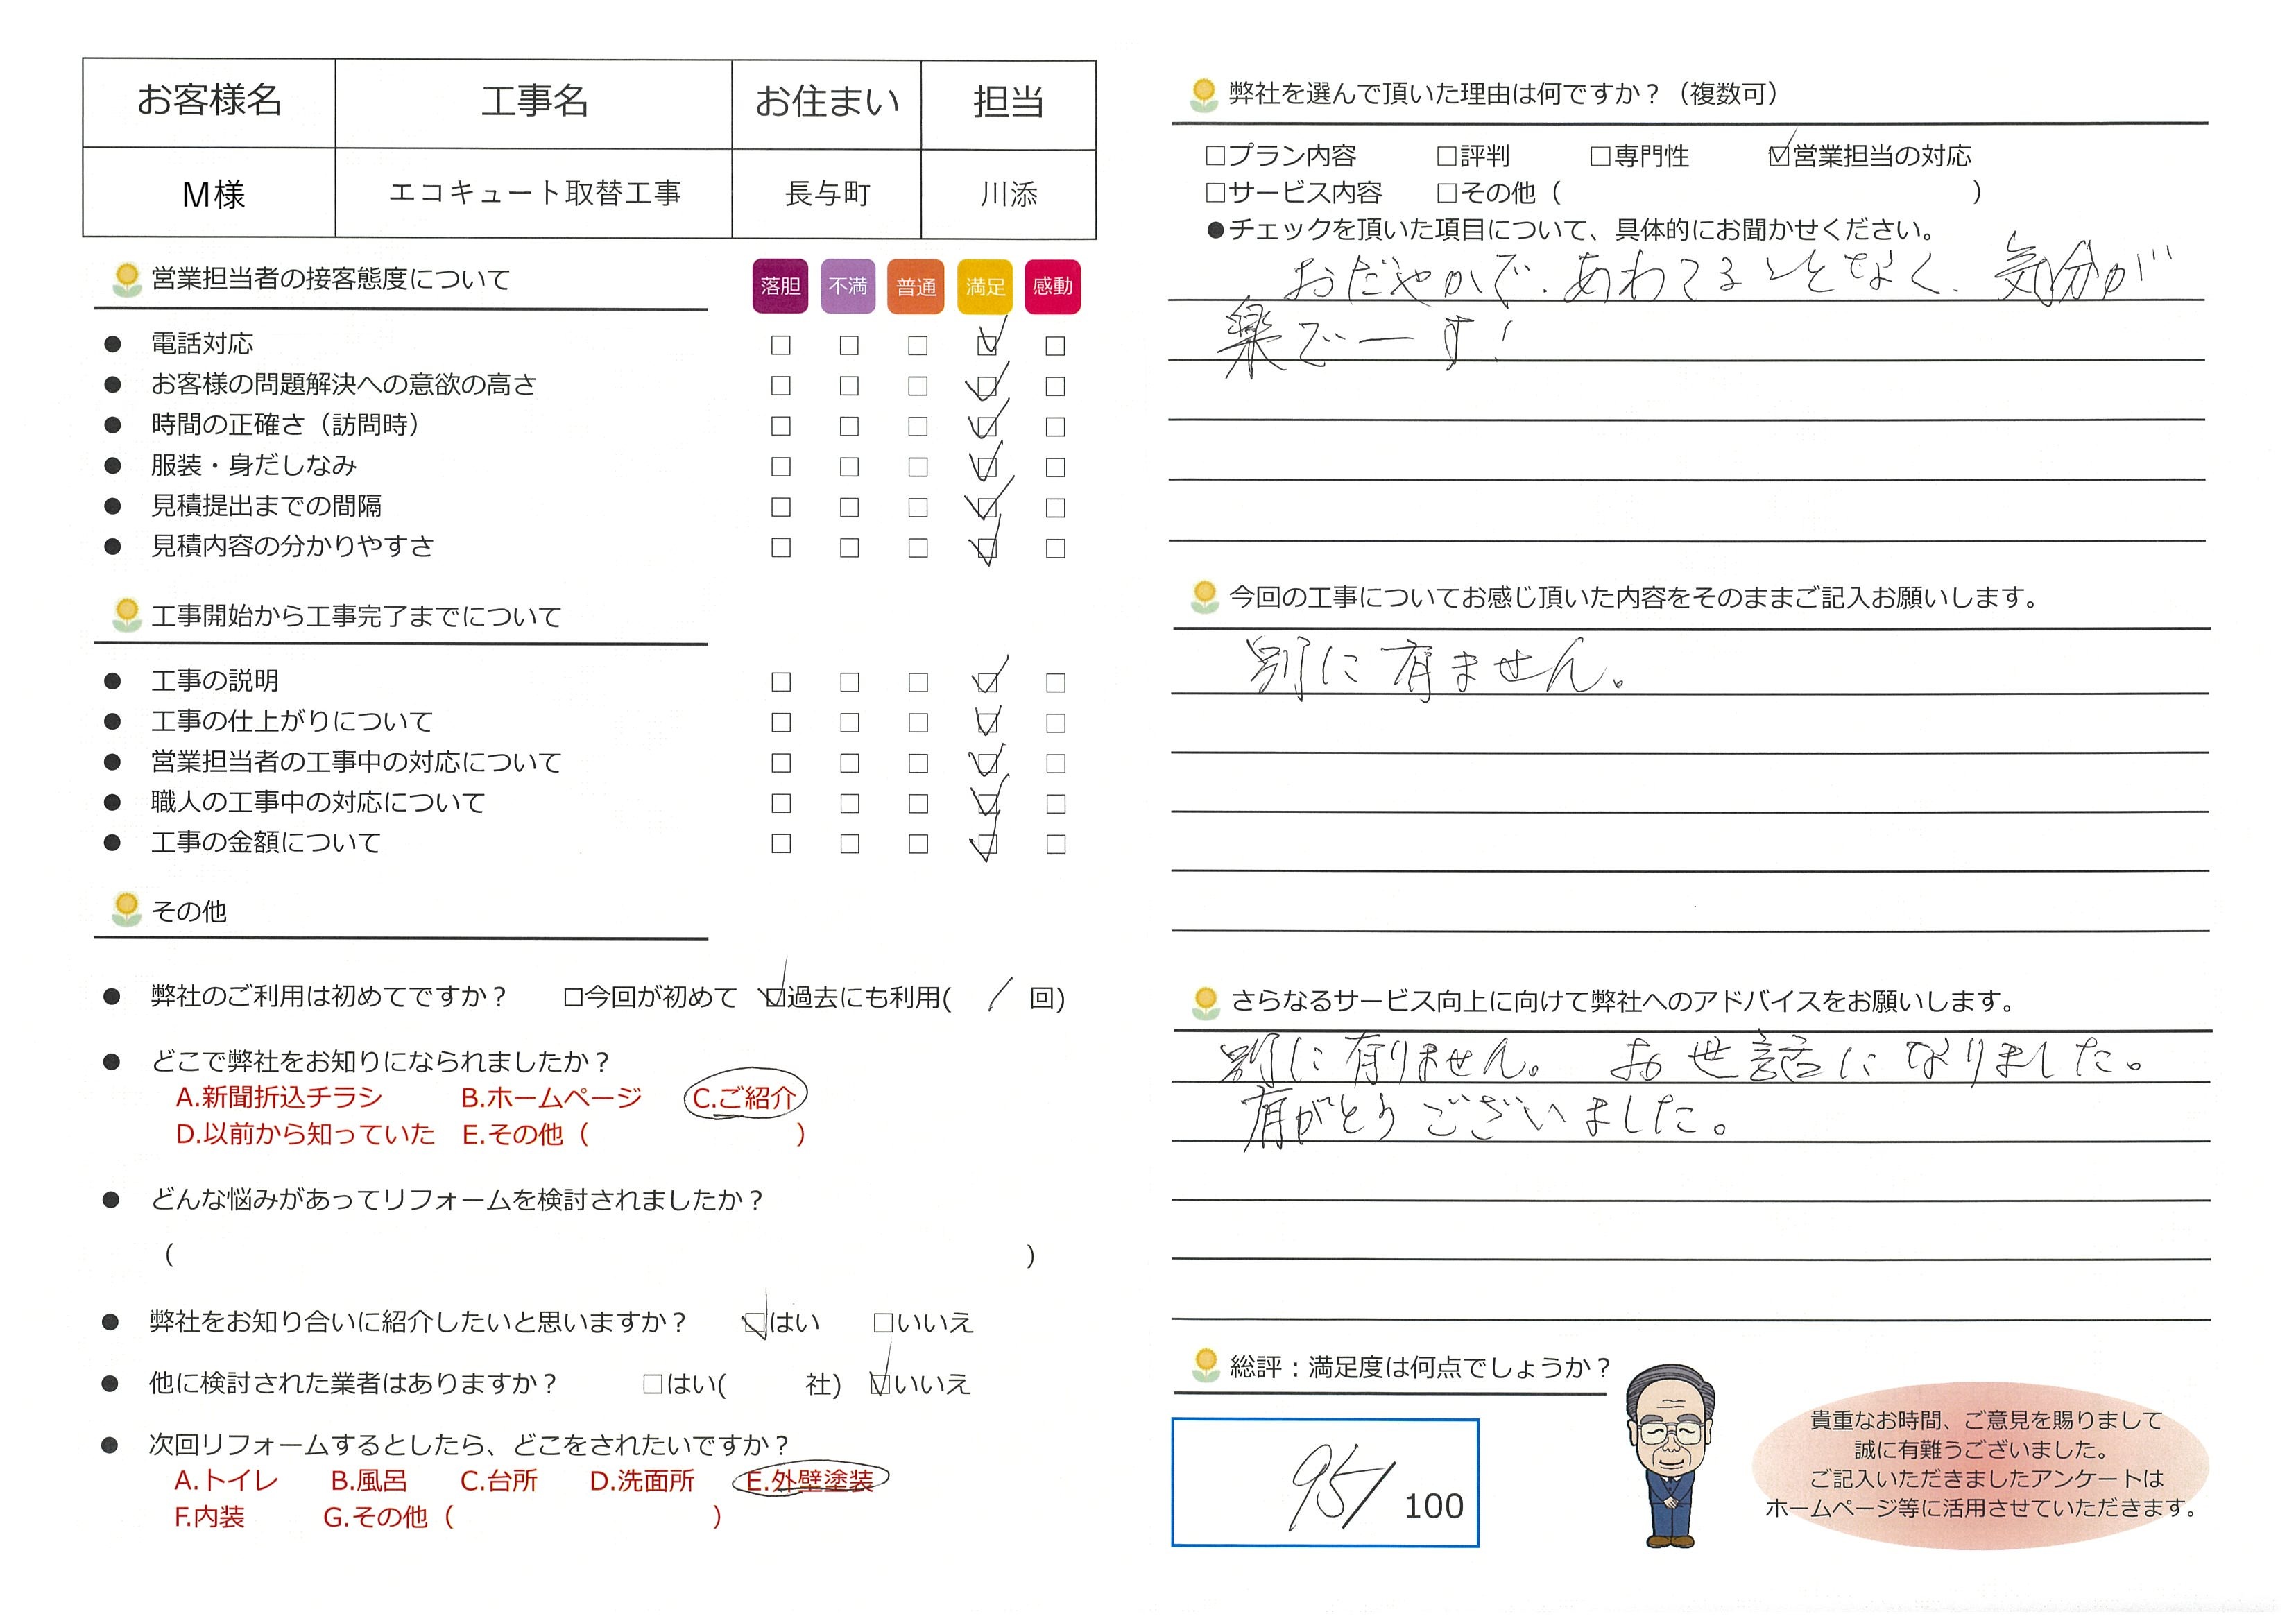 お客様名 工事名 お住まい 担当
M様 エコキュート取替工事 長与町 川添
営業担当者の接客態度について 落胆 不満 普通 満足 感動
● 電話対応 □ □ □ ☑ □
● お客様の問題解決への意欲の高さ □ □ □ ☑ □
● 時間の正確さ（訪問時） □ □ □ ☑ □
● 服装・身だしなみ □ □ □ ☑ □
● 見積提出までの間隔 □ □ □ ☑ □
● 見積内容の分かりやすさ □ □ □ ☑ □
工事開始から工事完了までについて
● 工事の説明 □ □ □ ☑ □
● 工事の仕上がりについて □ □ □ ☑ □
● 営業担当者の工事中の対応について □ □ □ ☑ □
● 職人の工事中の対応について □ □ □ ☑ □
● 工事の金額について □ □ □ ☑ □
その他
● 弊社のご利用は初めてですか？ □今回が初めて ☑過去にも利用( / 回)
● どこで弊社をお知りになられましたか？
A.新聞折込チラシ B.ホームページ C.ご紹介
D.以前から知っていた E.その他（ ）
● どんな悩みがあってリフォームを検討されましたか？
（ ）
● 弊社をお知り合いに紹介したいと思いますか？ ☑はい □いいえ
● 他に検討された業者はありますか？ □はい( 社) ☑いいえ
● 次回リフォームするとしたら、どこをされたいですか？
A.トイレ B.風呂 C.台所 D.洗面所 E.外壁塗装
F.内装 G.その他（ ）
弊社を選んで頂いた理由は何ですか？（複数可）
□プラン内容 □評判 □専門性 ☑営業担当の対応
□サービス内容 □その他（ ）
●チェックを頂いた項目について、具体的にお聞かせください。
おだやかで、あわてることなく、気分が
楽でーす！
今回の工事についてお感じ頂いた内容をそのままご記入お願いします。
別に有ません。
さらなるサービス向上に向けて弊社へのアドバイスをお願いします。
別に有りません。 お世話になりました。
有がとうございました。
総評：満足度は何点でしょうか？
95/ 100
貴重なお時間、ご意見を賜りまして
誠に有難うございました。
ご記入いただきましたアンケートは
ホームページ等に活用させていただきます。